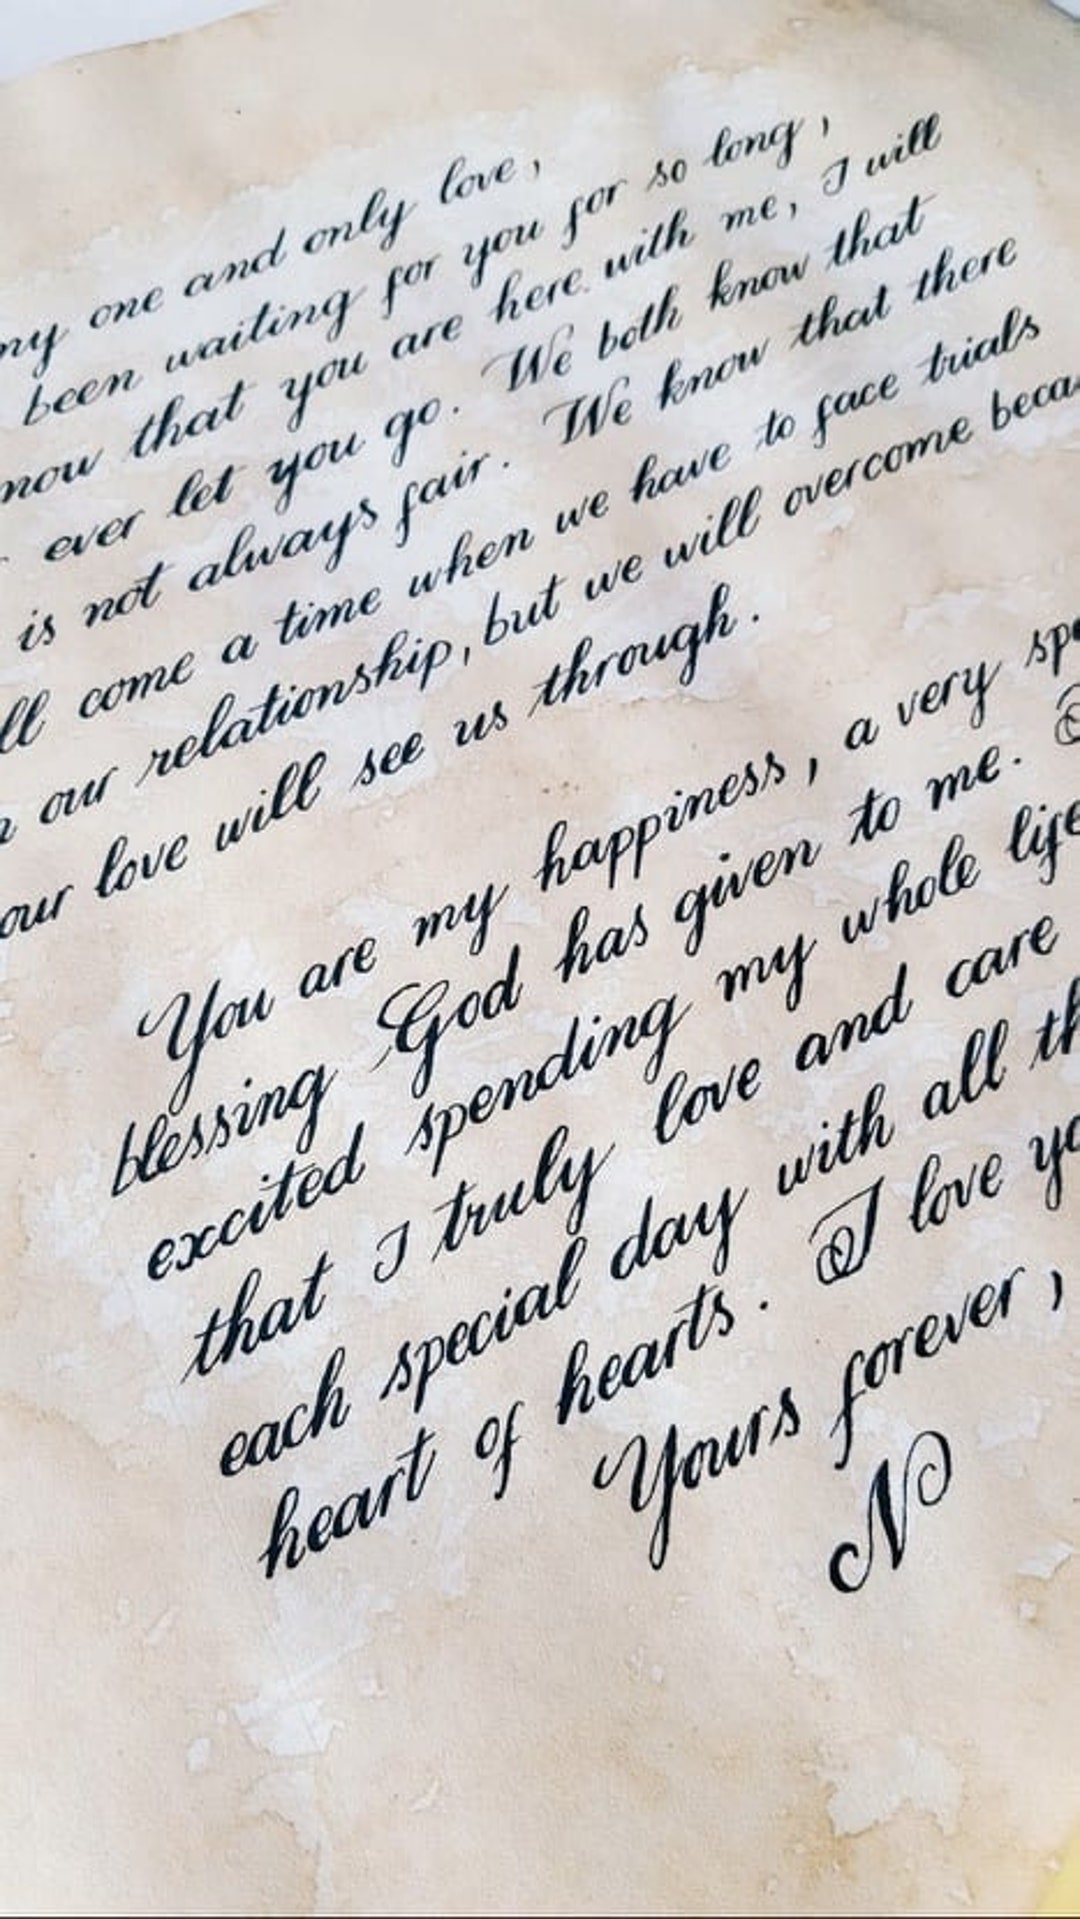 my one and only love,
been waiting for you for so long,
now that you are here with me, I will
ever let you go. We both know that
is not always fair. We know that there
ll come a time when we have to face trials
our relationship, but we will overcome becau
our love will see us through.
You are my happiness, a very spe
blessing God has given to me.
excited spending my whole life
that I truly love and care
each special day with all th
heart of hearts. I love yo
Yours forever,
N